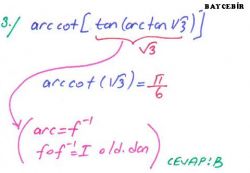 BAYCEBİR
3./ arccot[tan(arctan√3)]
√3
arccot(√3)=π/6
(arc=f⁻¹
fof⁻¹=I old.dan)
CEVAP:B